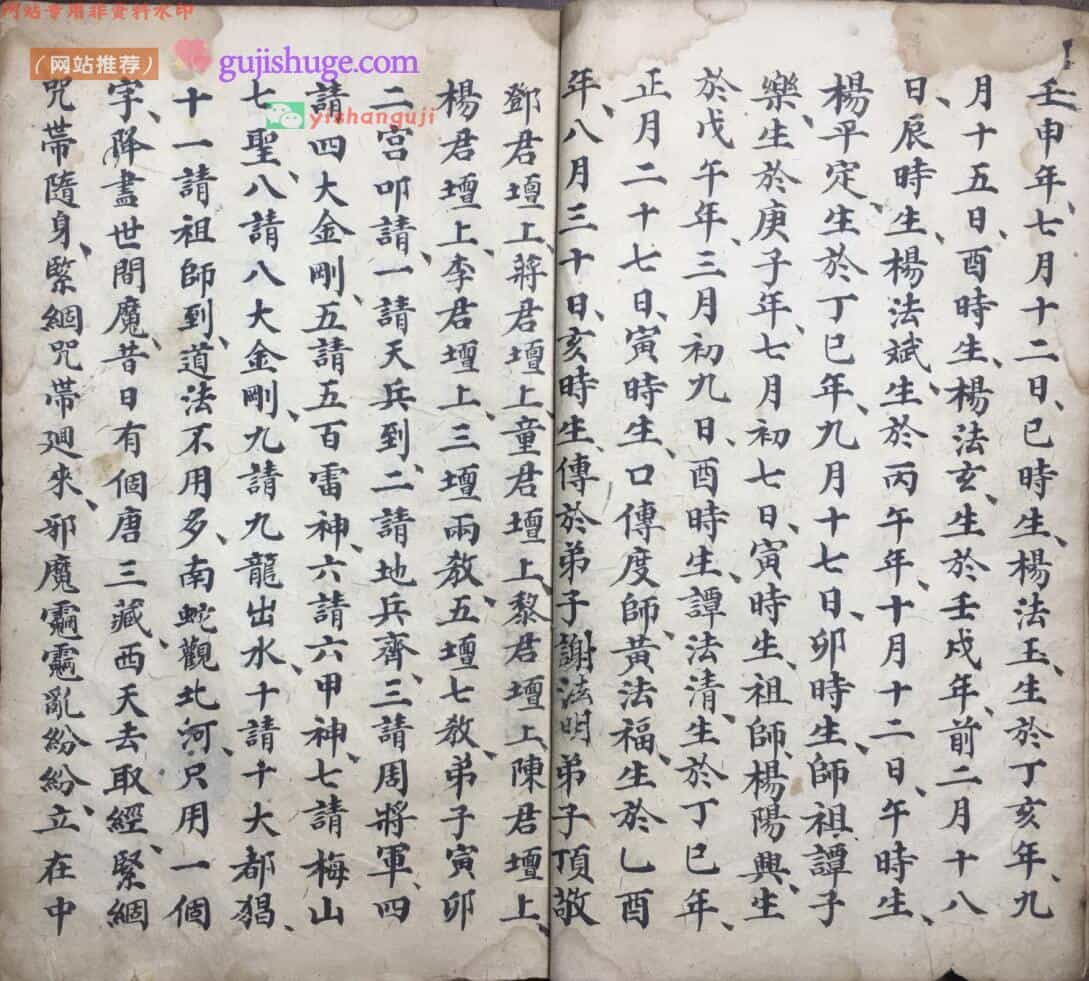 网站专用非资料水印
（网站推荐）
gujishuge.com
yishanguji
壬申年、七月十二日、巳時生、楊法玉、生於丁亥年、九
月十五日、酉時生、楊法玄、生於壬戌年、前二月十八
日、辰時生、楊法斌、生於丙午年、十月十二日、午時生、
楊平定、生於丁巳年、九月十七日、卯時生、師祖譚子
樂、生於庚子年、七月初七日、寅時生、祖師、楊陽興、生
於戊午年、三月初九日、酉時生、譚法清、生於丁巳年、
正月二十七日、寅時生、口傳度師、黃法福、生於乙酉
年、八月三十日、亥時生、傳於弟子謝法明弟子頂敬
鄧君壇上、蔣君壇上、童君壇上、黎君壇上、陳君壇上、
楊君壇上、李君壇上、三壇兩教、五壇七教、弟子寅卯
二宮叩請、一請天兵到、二請地兵齊、三請周將軍、四
請四大金剛、五請五百雷神、六請六甲神、七請梅山
七聖、八請八大金剛、九請九龍出水、十請十大都猖、
十一請祖師到、道法不用多、南蛇觀北河、只用一個
字、降盡世間魔、昔日有個唐三藏、西天去取經、緊綑
咒帶隨身、緊綑咒帶廻來、邪魔亂紛紛、立在中